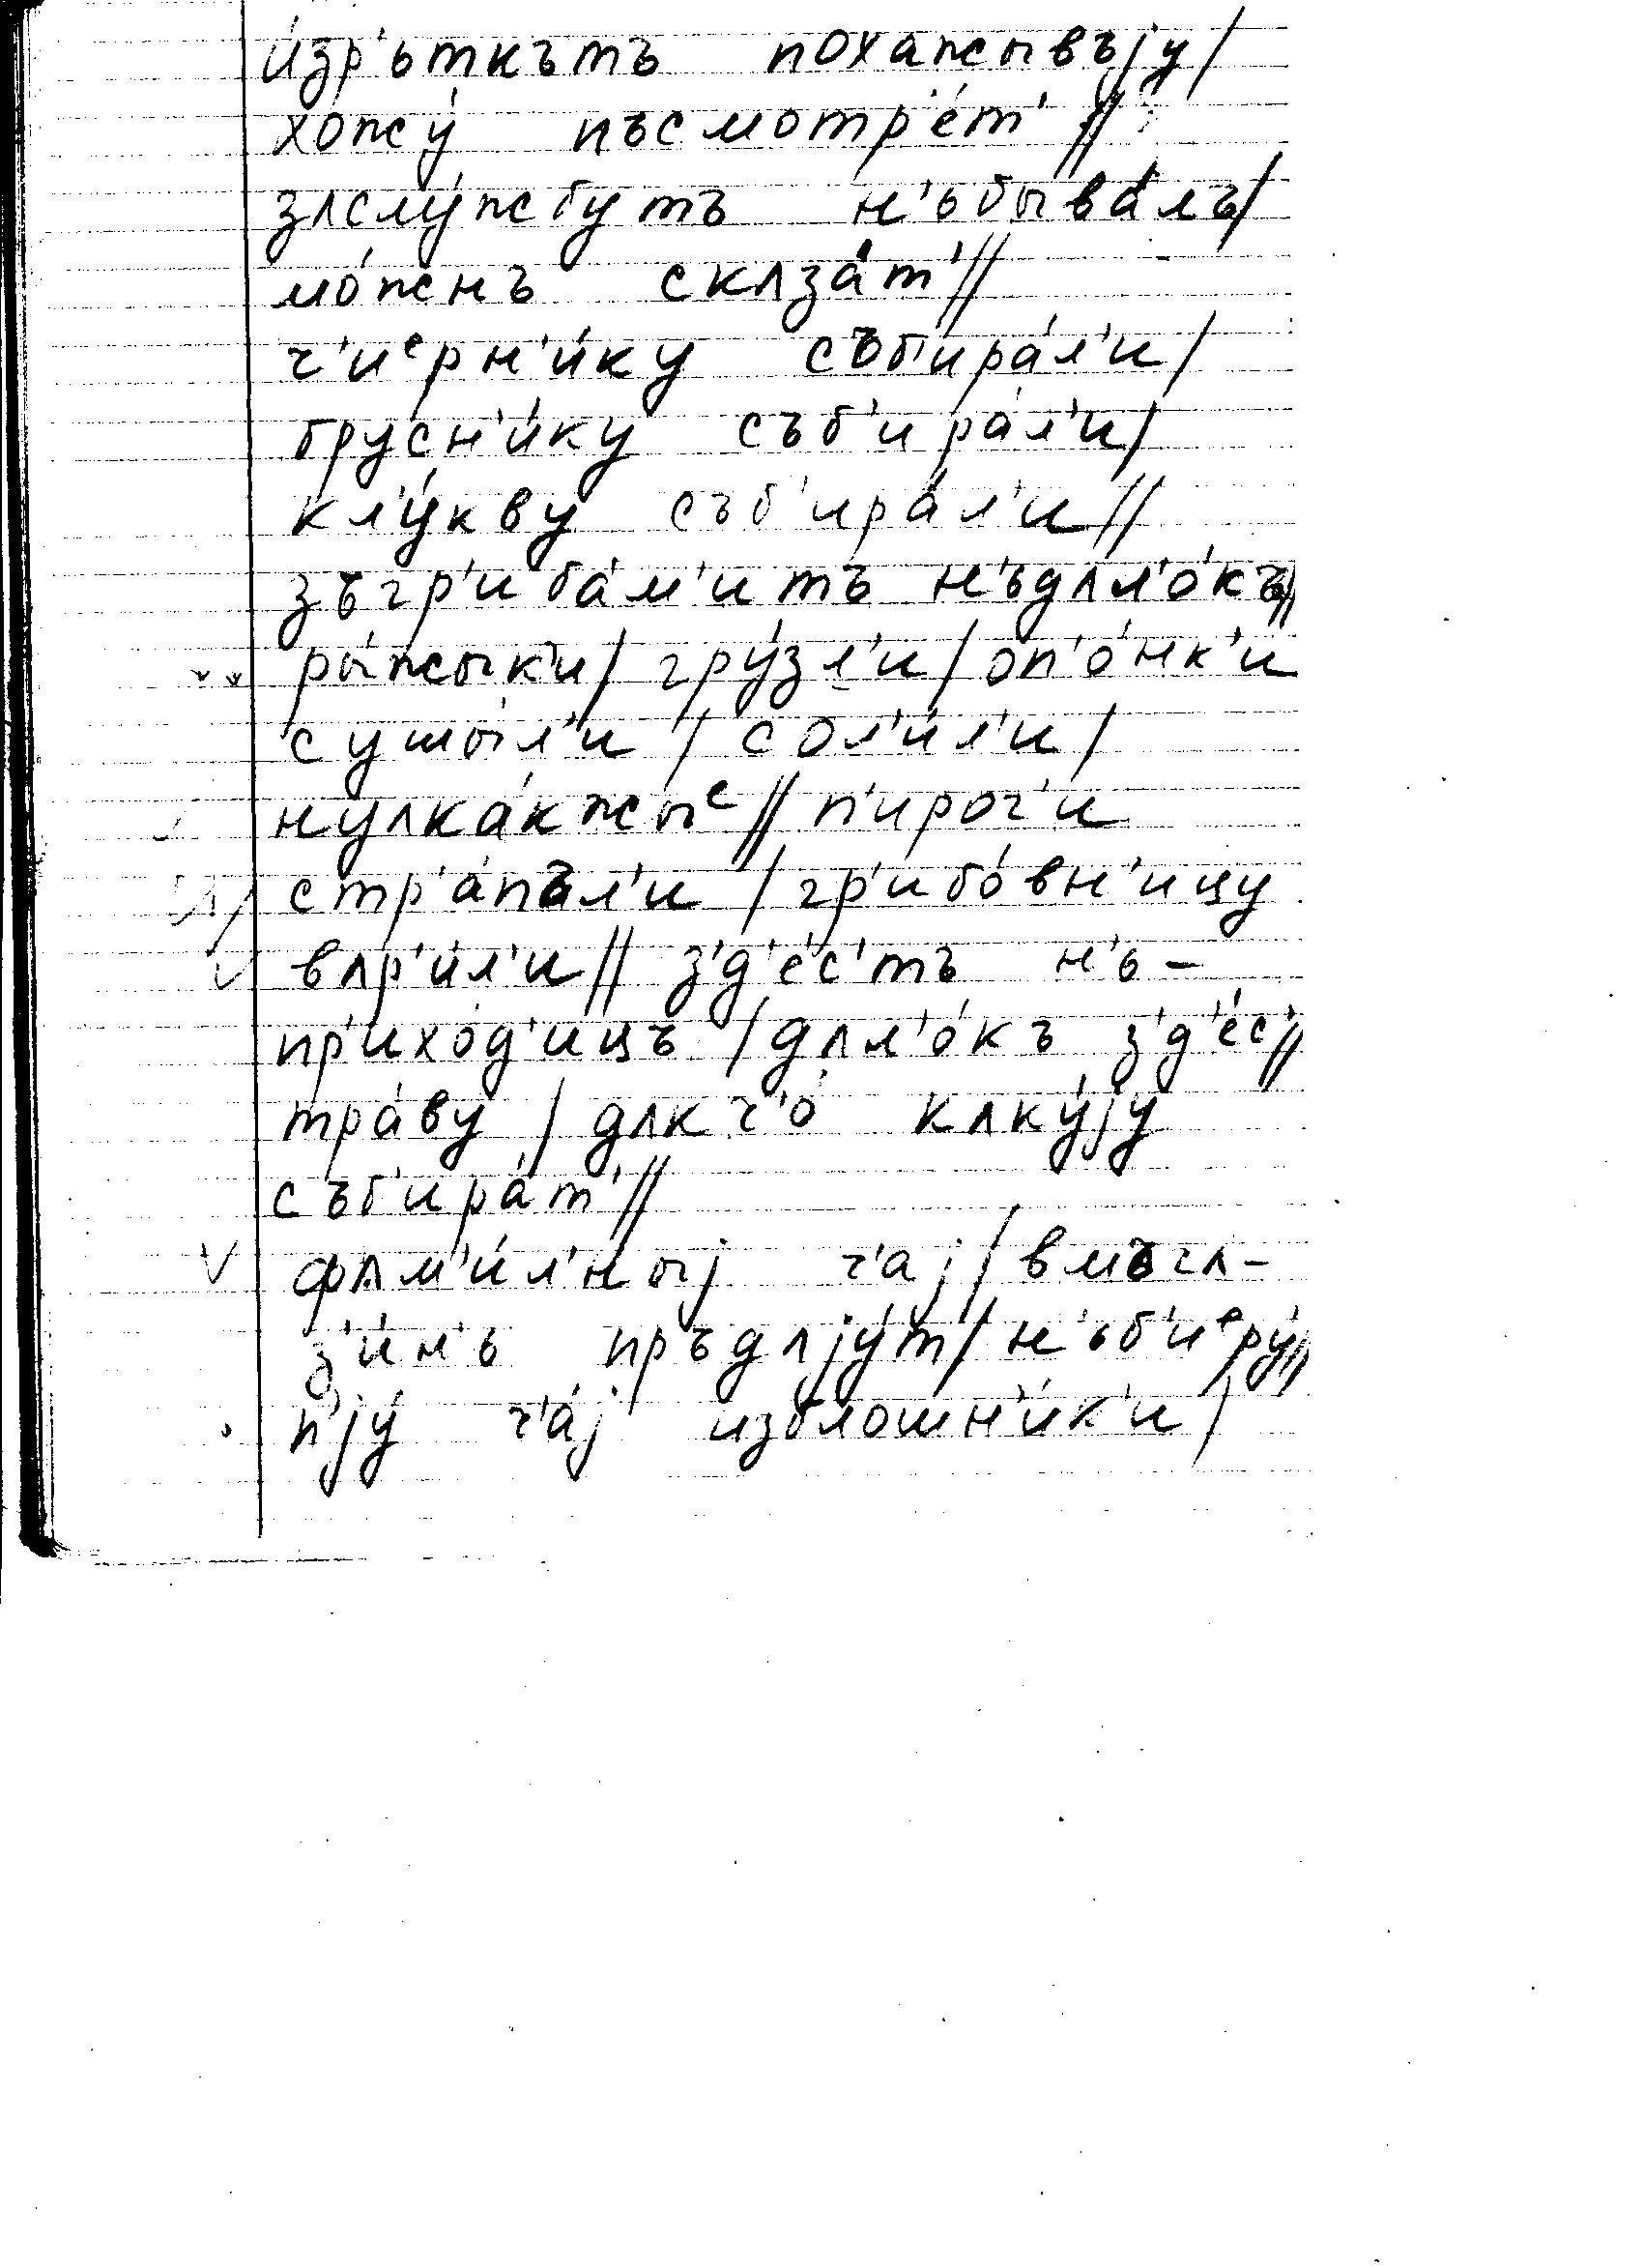 и́зр'ьткътъ похажывъjу/
хожу́ пъсмотр'е́т'//
зʌслу́жбутъ н'ьбыва́лъ/
мо́жнъ скʌза́т'//
ч'иᵉрн'и́ку съб'ира́л'и/
брус'н'и́ку съб'ира́л'и/
кл'у́кву съб'ира́л'и//
зъгр'иба́м'итъ н'ьдʌл'о́къ//
ры́жык'и/ гру́зл'и/ оп'о́нк'и
сушы́л'и/ сол'и́л'и/
нуʌка́кжыᵉ// п'ирог'и
стр'а́пъл'и/ гр'ибо́вн'ицу
вʌр'и́л'и// з'д'е́с'тъ н'ь-
пр'ихо́д'ицъ/ дʌл'о́къ з'д'е́с'//
тра́ву/ дʌкч'о́ кʌку́jу
съб'ира́т'//
фʌм'и́л'ныj ч'аj/ вмъгʌ-
з'и́н'ь пръдʌjу́т/ н'ьб'иᵉру́//
п'jу́ ч'а́j изблошн'и́к'и/